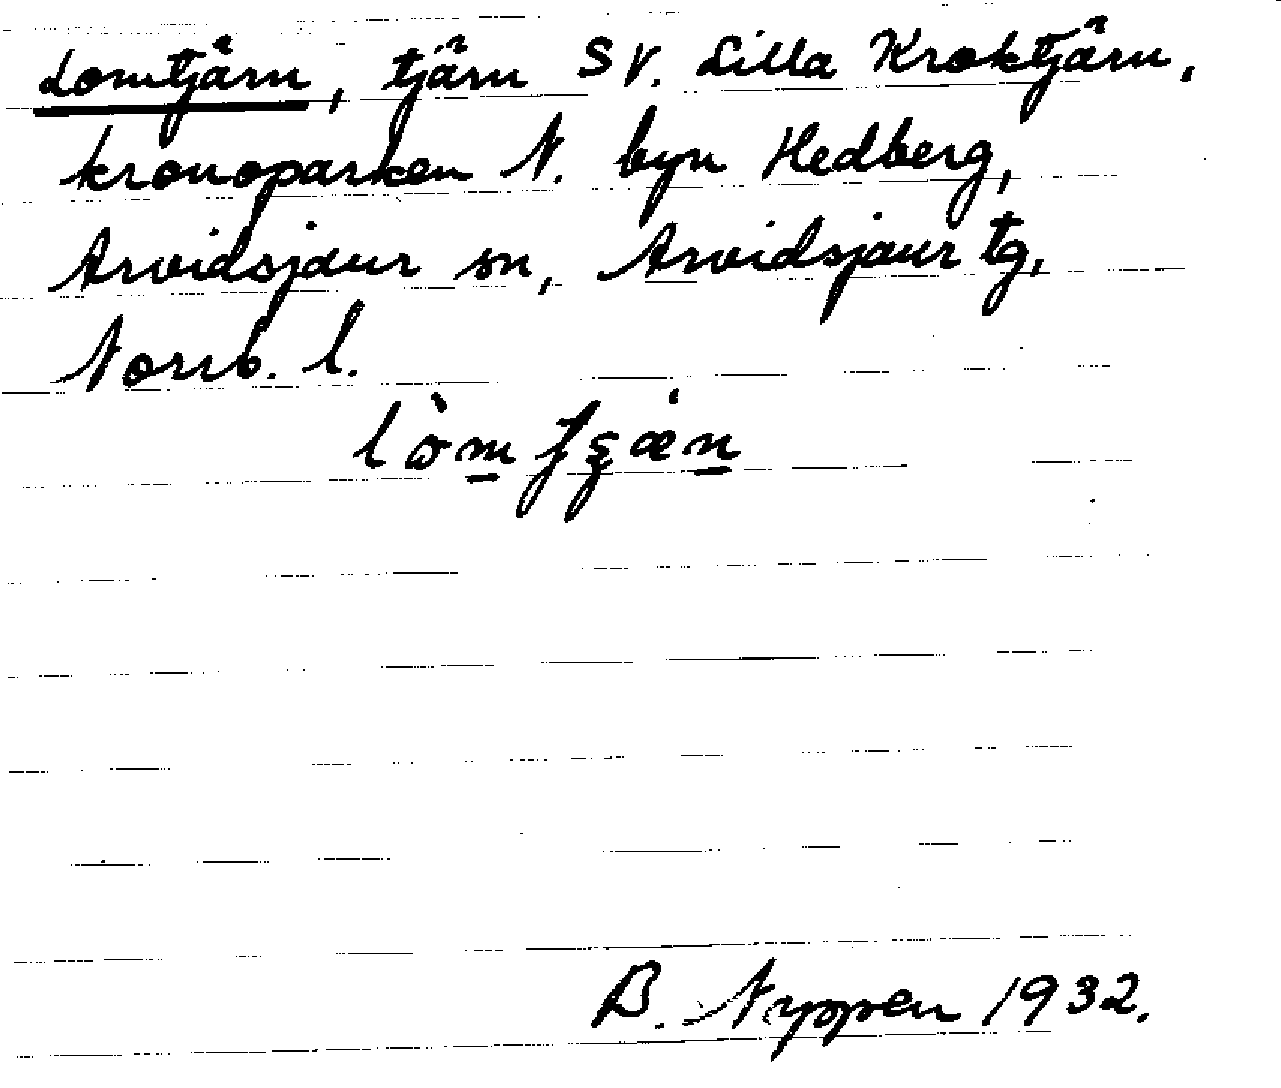 Lomtjärn, tjärn SV. Lilla Kroktjärn,
kronoparken N. byn Hedberg,
Arvidsjaur sn, Arvidsjaur tg,
Norrb. l.
B. Nyppen 1932.